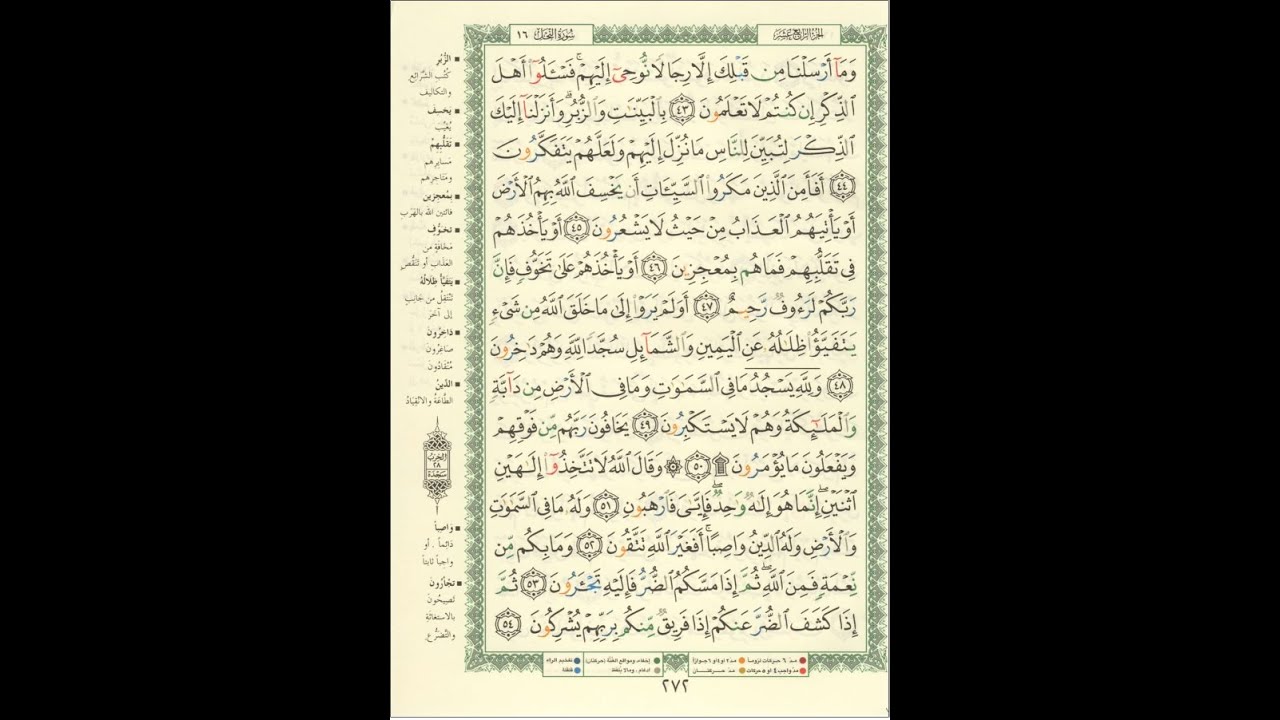 الجزء الرابع عشر
سورة النحل ١٦
وَمَآ أَرْسَلْنَا مِن قَبْلِكَ إِلَّا رِجَالًا نُّوحِىٓ إِلَيْهِمْ ۚ فَسْـَٔلُوٓا۟ أَهْلَ
ٱلذِّكْرِ إِن كُنتُمْ لَا تَعْلَمُونَ ٤٣ بِٱلْبَيِّنَـٰتِ وَٱلزُّبُرِ ۗ وَأَنزَلْنَآ إِلَيْكَ
ٱلذِّكْرَ لِتُبَيِّنَ لِلنَّاسِ مَا نُزِّلَ إِلَيْهِمْ وَلَعَلَّهُمْ يَتَفَكَّرُونَ
٤٤ أَفَأَمِنَ ٱلَّذِينَ مَكَرُوا۟ ٱلسَّيِّـَٔاتِ أَن يَخْسِفَ ٱللَّهُ بِهِمُ ٱلْأَرْضَ
أَوْ يَأْتِيَهُمُ ٱلْعَذَابُ مِنْ حَيْثُ لَا يَشْعُرُونَ ٤٥ أَوْ يَأْخُذَهُمْ
فِى تَقَلُّبِهِمْ فَمَا هُم بِمُعْجِزِينَ ٤٦ أَوْ يَأْخُذَهُمْ عَلَىٰ تَخَوُّفٍ فَإِنَّ
رَبَّكُمْ لَرَءُوفٌ رَّحِيمٌ ٤٧ أَوَلَمْ يَرَوْا۟ إِلَىٰ مَا خَلَقَ ٱللَّهُ مِن شَىْءٍ
يَتَفَيَّؤُا۟ ظِلَـٰلُهُۥ عَنِ ٱلْيَمِينِ وَٱلشَّمَآئِلِ سُجَّدًا لِّلَّهِ وَهُمْ دَٰخِرُونَ
٤٨ وَلِلَّهِ يَسْجُدُ مَا فِى ٱلسَّمَـٰوَٰتِ وَمَا فِى ٱلْأَرْضِ مِن دَآبَّةٍ
وَٱلْمَلَـٰٓئِكَةُ وَهُمْ لَا يَسْتَكْبِرُونَ ٤٩ يَخَافُونَ رَبَّهُم مِّن فَوْقِهِمْ
وَيَفْعَلُونَ مَا يُؤْمَرُونَ ۩ ٥٠ ۞ وَقَالَ ٱللَّهُ لَا تَتَّخِذُوٓا۟ إِلَـٰهَيْنِ
ٱثْنَيْنِ ۖ إِنَّمَا هُوَ إِلَـٰهٌ وَٰحِدٌ ۖ فَإِيَّـٰىَ فَٱرْهَبُونِ ٥١ وَلَهُۥ مَا فِى ٱلسَّمَـٰوَٰتِ
وَٱلْأَرْضِ وَلَهُ ٱلدِّينُ وَاصِبًا ۚ أَفَغَيْرَ ٱللَّهِ تَتَّقُونَ ٥٢ وَمَا بِكُم مِّن
نِّعْمَةٍ فَمِنَ ٱللَّهِ ۖ ثُمَّ إِذَا مَسَّكُمُ ٱلضُّرُّ فَإِلَيْهِ تَجْـَٔرُونَ ٥٣ ثُمَّ
إِذَا كَشَفَ ٱلضُّرَّ عَنكُمْ إِذَا فَرِيقٌ مِّنكُم بِرَبِّهِمْ يُشْرِكُونَ ٥٤
■ الزُّبُرِ
كُتُبِ الشَّرَائِعِ
والتكاليف
■ يَخْسِفَ
يُغَيِّبَ
■ تَقَلُّبِهِمْ
مَسَايِرِهِم
ومَتَاجِرِهم
■ بِمُعْجِزِين
فائتين الله بالهَرَبِ
■ تَخَوُّفٍ
مَخَافَةٍ من
العَذَابِ أو تَنَقُّصٍ
■ يَتَفَيَّأُ ظِلالُهُ
تَنْتَقِلُ من جَانِبٍ
إلى آخَرَ
■ دَاخِرُونَ
صَاغِرُونَ
مُنْقَادُونَ
■ الدِّينُ
الطَّاعَةُ والانْقِيَادُ
الحزب
٢٨
سجدة
■ وَاصِباً
دَائِماً . أو
واجباً ثابتاً
■ تَجْأَرُونَ
تَضِجُّونَ
بالاستغاثَةِ
والتَّضَرُّعِ
مدّ ٦ حركات لزوماً
مدّ ٢ أو ٤ أو ٦ جوازاً
إخفاء، ومواقع الغنّة (حركتان)
تفخيم الراء
مدّ واجب ٤ أو ٥ حركات
مدّ حركتان
إدغام، وما لا يُلفظ
قلقلة
٢٧٢